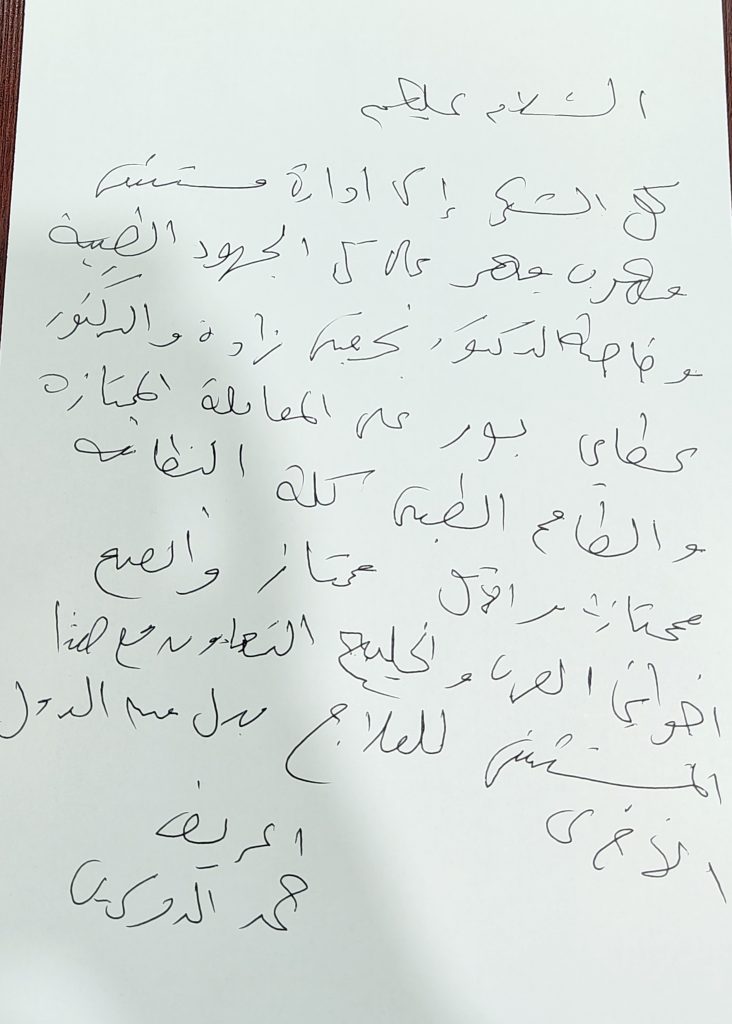 السلام عليكم
كل الشكر إلى ادارة مستشفى
على كل الجهود الطبية
وخاصة الدكتور نجفي زادة والدكتور
عطايي بور على المعاملة الممتازه
والطاقم الطبي كله النظافه
ممتازة الاكل ممتاز وانصح
اخواني العرب والخليج التعاون مع هذا
المستشفى للعلاج بدل من الدول
الأخرى
محمد